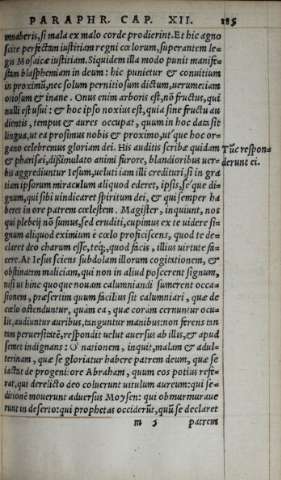 PARAPHR. CAP. XII. 185
muneris, si mala ex malo corde prodierint. Et hic agno
scite perfectam iustitiam regni cœlorum, superantem le-
gis Mosaicæ iustitiam. Siquidem illa modo punit manife-
stam blasphemiam in deum: hic punietur & conuitium
in proximũ, nec solum pernitiosum dictum, uerumetiam
otiosum & inane. Onus enim arboris est, nõ fructus, qui
nulli est usui: & hoc ipso noxius est, quia sine fructu au
dientis, tempus & aures occupat, quum in hoc data sit
lingua, ut ea prosimus nobis & proximo, ut'que hoc or-
gano celebremus gloriam dei. His auditis scribæ quidam
& pharisæi, dissimulato animi furore, blandioribus uer-
bis aggrediuntur Iesum, ueluti iam illi credituri, si in gra
tiam ipsorum miraculum aliquod ederet, ipsis, se'que di-
gnum, qui sibi uindicaret spiritum dei, & qui semper ha
beret in ore patrem cœlestem. Magister, inquiunt, nos
qui plebeij nõ sumus, sed eruditi, cupimus ex te uidere si-
gnum aliquod eximium è cœlo proficiscens, quod te de-
claret deo charum esse, te'que, quod facis, illius uirtute fa-
cere. At Iesus sciens subdolam illorum cogitationem, &
obstinatam maliciam, qui non in aliud poscerent signum,
nisi ut hinc quoque nouam calumniandi sumerent occa-
sionem, præsertim quum facilius sit calumniari, quæ de
cœlo ostenduntur, quàm ea, quæ coràm cernuntur ocu-
lis, audiuntur auribus, tanguntur manibus: non ferens tan
tam peruersitatẽ, respondit uelut auersus ab illis, & apud
semet indignans: O nationem, inquit, malam & adul-
terinam, quæ se gloriatur habere patrem deum, quæ se
iactat de progenie ore Abraham, quum eos potius refe-
rat, qui derelicto deo coluerunt uitulum aureum: qui se-
ditionẽ mouerunt aduersus Moysen: qui obmurmuraue
runt in deserto: qui prophetas occiderũt, quũ se declaret
m 5 patrem
Tũc respon-
derunt ei.